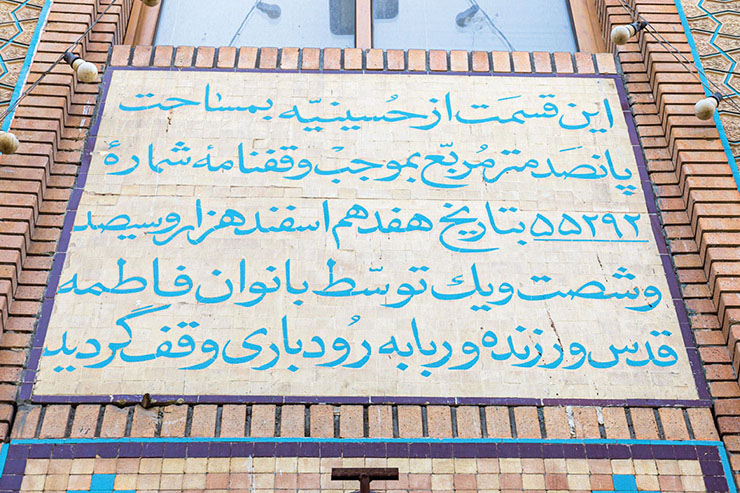 این قسمَت از حُسینیّه بمساحت
پانصَد متر مُربّع بموجبْ وقفنامهٔ شمارهٔ
۵۵۲۹۲ بتاریخ هفدهم اسفند هزار و سیصد
و شصت و یک توسّط بانوان فاطمه
قدس و رزنده و ربابه رُودباری وقف گردید